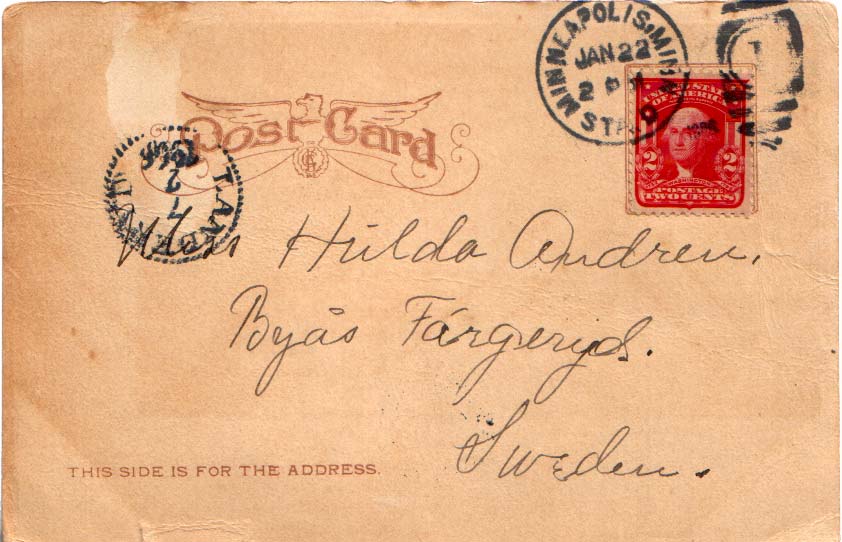 MINNEAPOLIS, MINN.
JAN 22
2 P M
1906
STA.
Post Card
UNITED STATES
OF AMERICA
2 2
WASHINGTON
POSTAGE
TWO CENTS
7 2
1906
Miss Hulda Andren.
Byås Färgeryd.
Sweden.
THIS SIDE IS FOR THE ADDRESS.